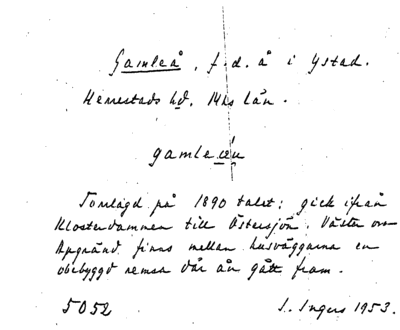 Gamleå, f.d. å i Ystad.
Herrestads hd. Mhs län.
gamleån
Torrlagd på 1890 talet; gick ifrån
Klosterdammen till Östersjön. Väster om
Apgränd finns mellan husväggarna en
obebyggd remsa där ån gått fram.
5052 I. Ingers 1953.